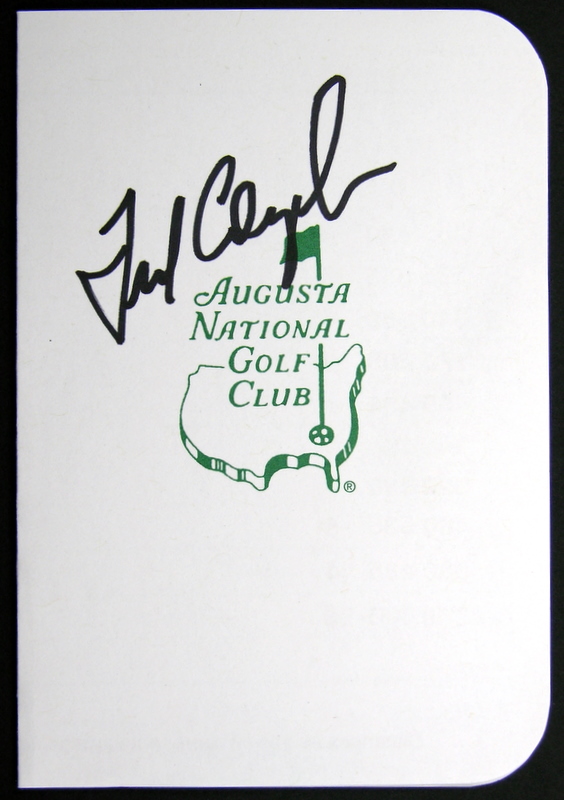 Fred Couples
AUGUSTA
NATIONAL
GOLF
CLUB
®